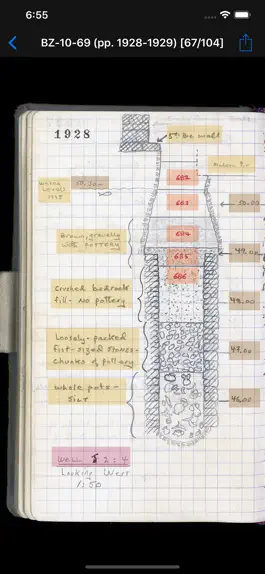 6:55
BZ-10-69 (pp. 1928-1929) [67/104]
1928
5th the wall
Modern P.
water
level
602
603
50.00
Brown gravelly
with pottery
604
49.00
605
606
Crushed bedrock
fill - No pottery
48.00
Loosely-packed
fist-sized stones-
chunks of pottery
whole pots-
silt
46.00
Well J 2:4
Looking West
1:50